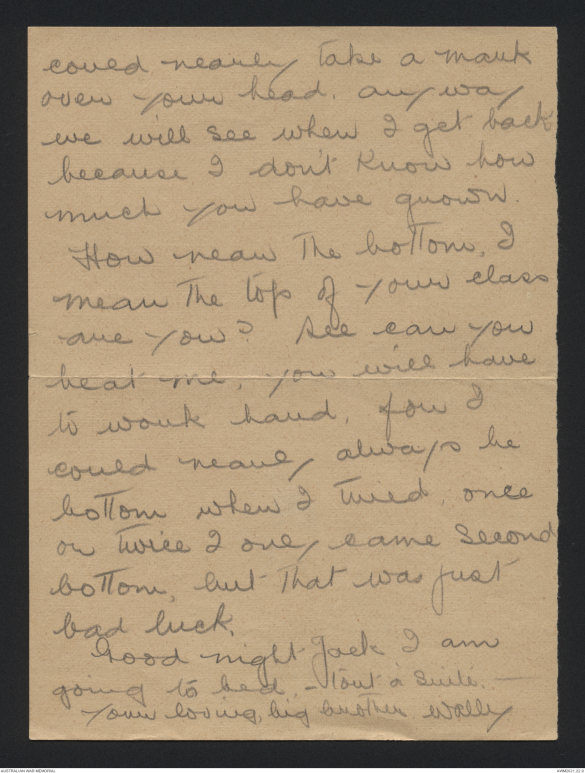 could nearly take a mark
over your head. anyway
we will see when I get back
because I don't know how
much you have grown.
How near the bottom, I
mean the top of your class
are you? See can you
beat me, you will have
to work hard, for I
could nearly always be
bottom when I tried, once
or twice I only came second
bottom, but that was just
bad luck.
Good night Jack I am
going to bed. – Tout à suite. –
Your loving big brother Wally
AUSTRALIAN WAR MEMORIAL